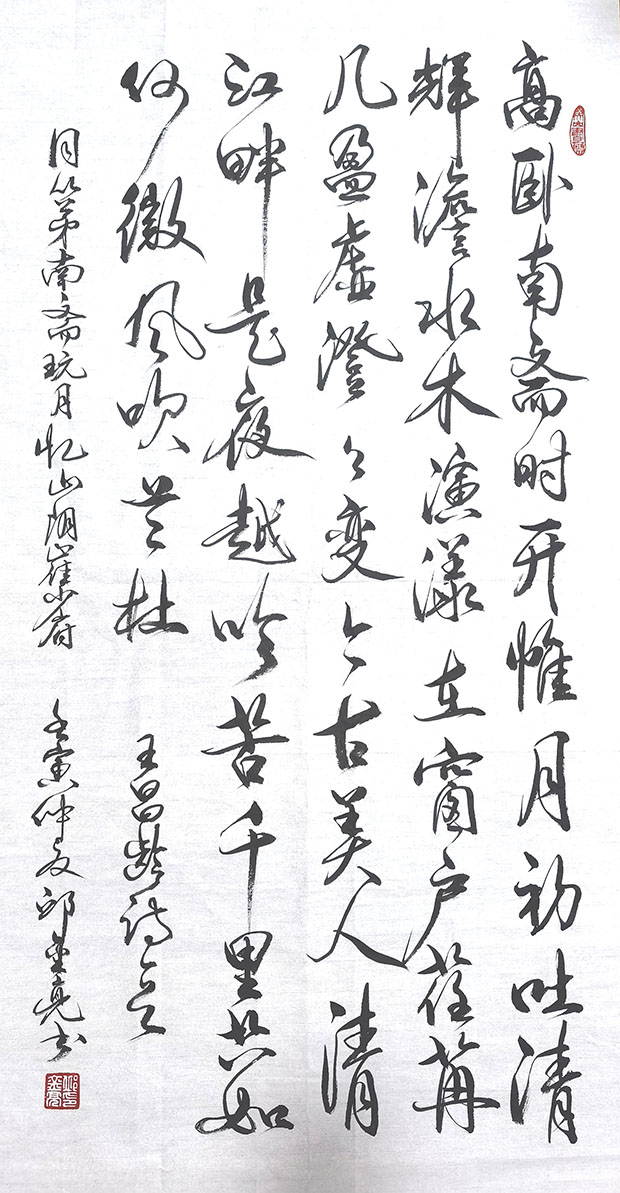 高卧南斋时开帷月初吐清
辉澹水木演漾在窗户荏苒
几盈虚澄々变今古美人清
江畔是夜越吟苦千里共如
何微风吹兰杜
王昌龄诗
同从弟南斋玩月忆山阴崔少府 壬寅仲夏邱金亮书